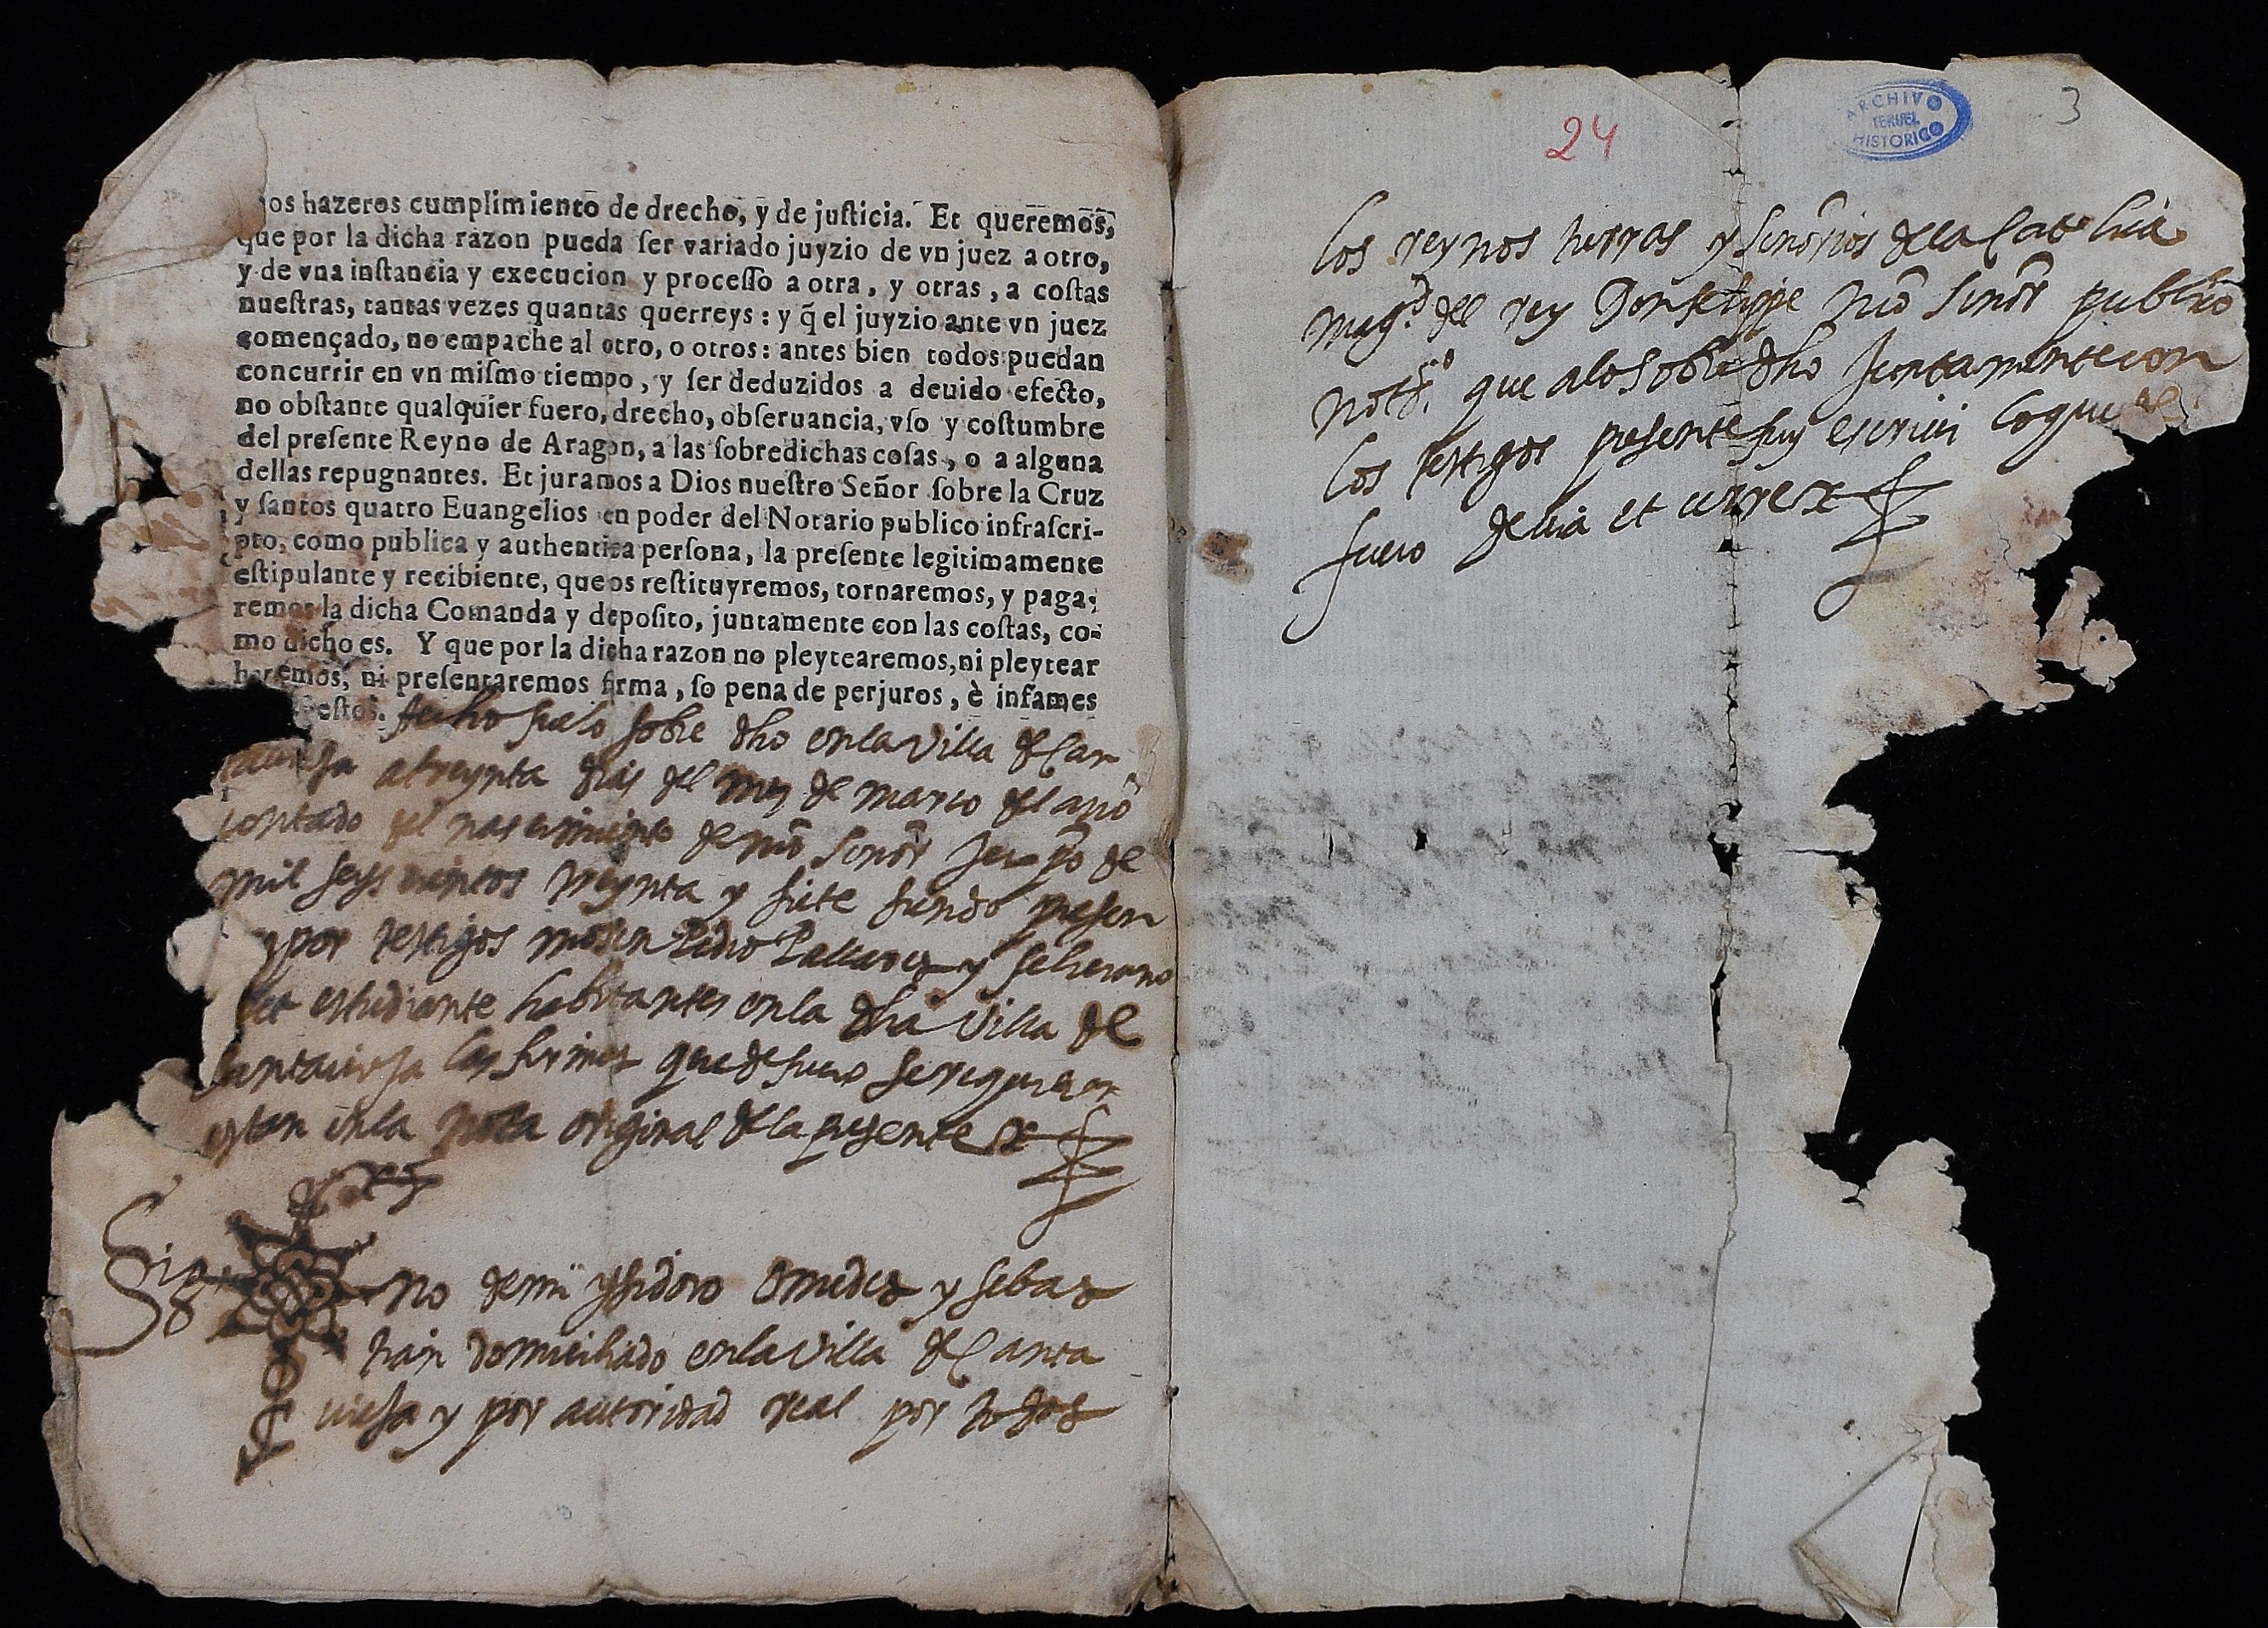 nos hazeros cumplimiento de drecho, y de justicia. Et queremos,
que por la dicha razon pueda ser variado juyzio de vn juez a otro,
y de vna instancia y execucion y processo a otra, y otras, a costas
nuestras, tantas vezes quantas querreys: y q̃ el juyzio ante vn juez
començado, no empache al otro, o otros: antes bien todos puedan
concurrir en vn mismo tiempo, y ser deduzidos a deuido efecto,
no obstante qualquier fuero, drecho, obseruancia, vso y costumbre
del presente Reyno de Aragon, a las sobredichas cosas, o a alguna
dellas repugnantes. Et juramos a Dios nuestro Señor sobre la Cruz
y santos quatro Euangelios en poder del Notario publico infrascri-
pto, como publica y authentica persona, la presente legitimamente
estipulante y recibiente, que os restituyremos, tornaremos, y paga-
remos la dicha Comanda y deposito, juntamente con las costas, co-
mo dicho es. Y que por la dicha razon no pleytearemos, ni pleytear
haremos, ni presentaremos firma, so pena de perjuros, è infames
festos. fecho fue lo sobre dho en la Villa de Can
tauieja a treynta dias del mes de março del año
contado del nascimiento de nrõ Senõr Jesu xpõ de
mil seys cientos treynta y siete siendo presen
por testigos mosen Pedro Pallares y
estudiante habitantes en la dha Villa de
Cantauieja las firmas que de fuero se requieren
estan en la nota original de la presente
Sig no de mi ysidoro Omedes y sebas
tian domiciliado en la Villa de Canta
uieja y por autoridad real por todos
24
ARCHIVO
TERUEL
HISTORICO
3
los reynos tierras y señorios de la Catolica
Magd. del rey Don felippe nrõ Senõr publico
notro. que a lo sobre dho Juntamente con
los testigos presente fuy escriui lo que de
fuero deuia et cerre